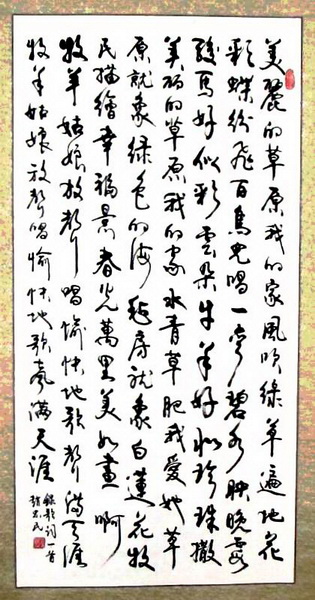 美麗的草原我的家風吹綠草遍地花
彩蝶紛飛百鳥兒唱一彎碧水映晚霞
駿馬好似彩雲朵牛羊好似珍珠撒
美丽的草原我的家水青草肥我愛她草
原就象綠色的海氈房就象白蓮花牧
民描繪幸福景春光萬里美如畫啊
牧羊姑娘放聲唱愉快地歌聲滿天涯
牧羊姑娘放声唱愉快地歌聲滿天涯
錄歌詞一首